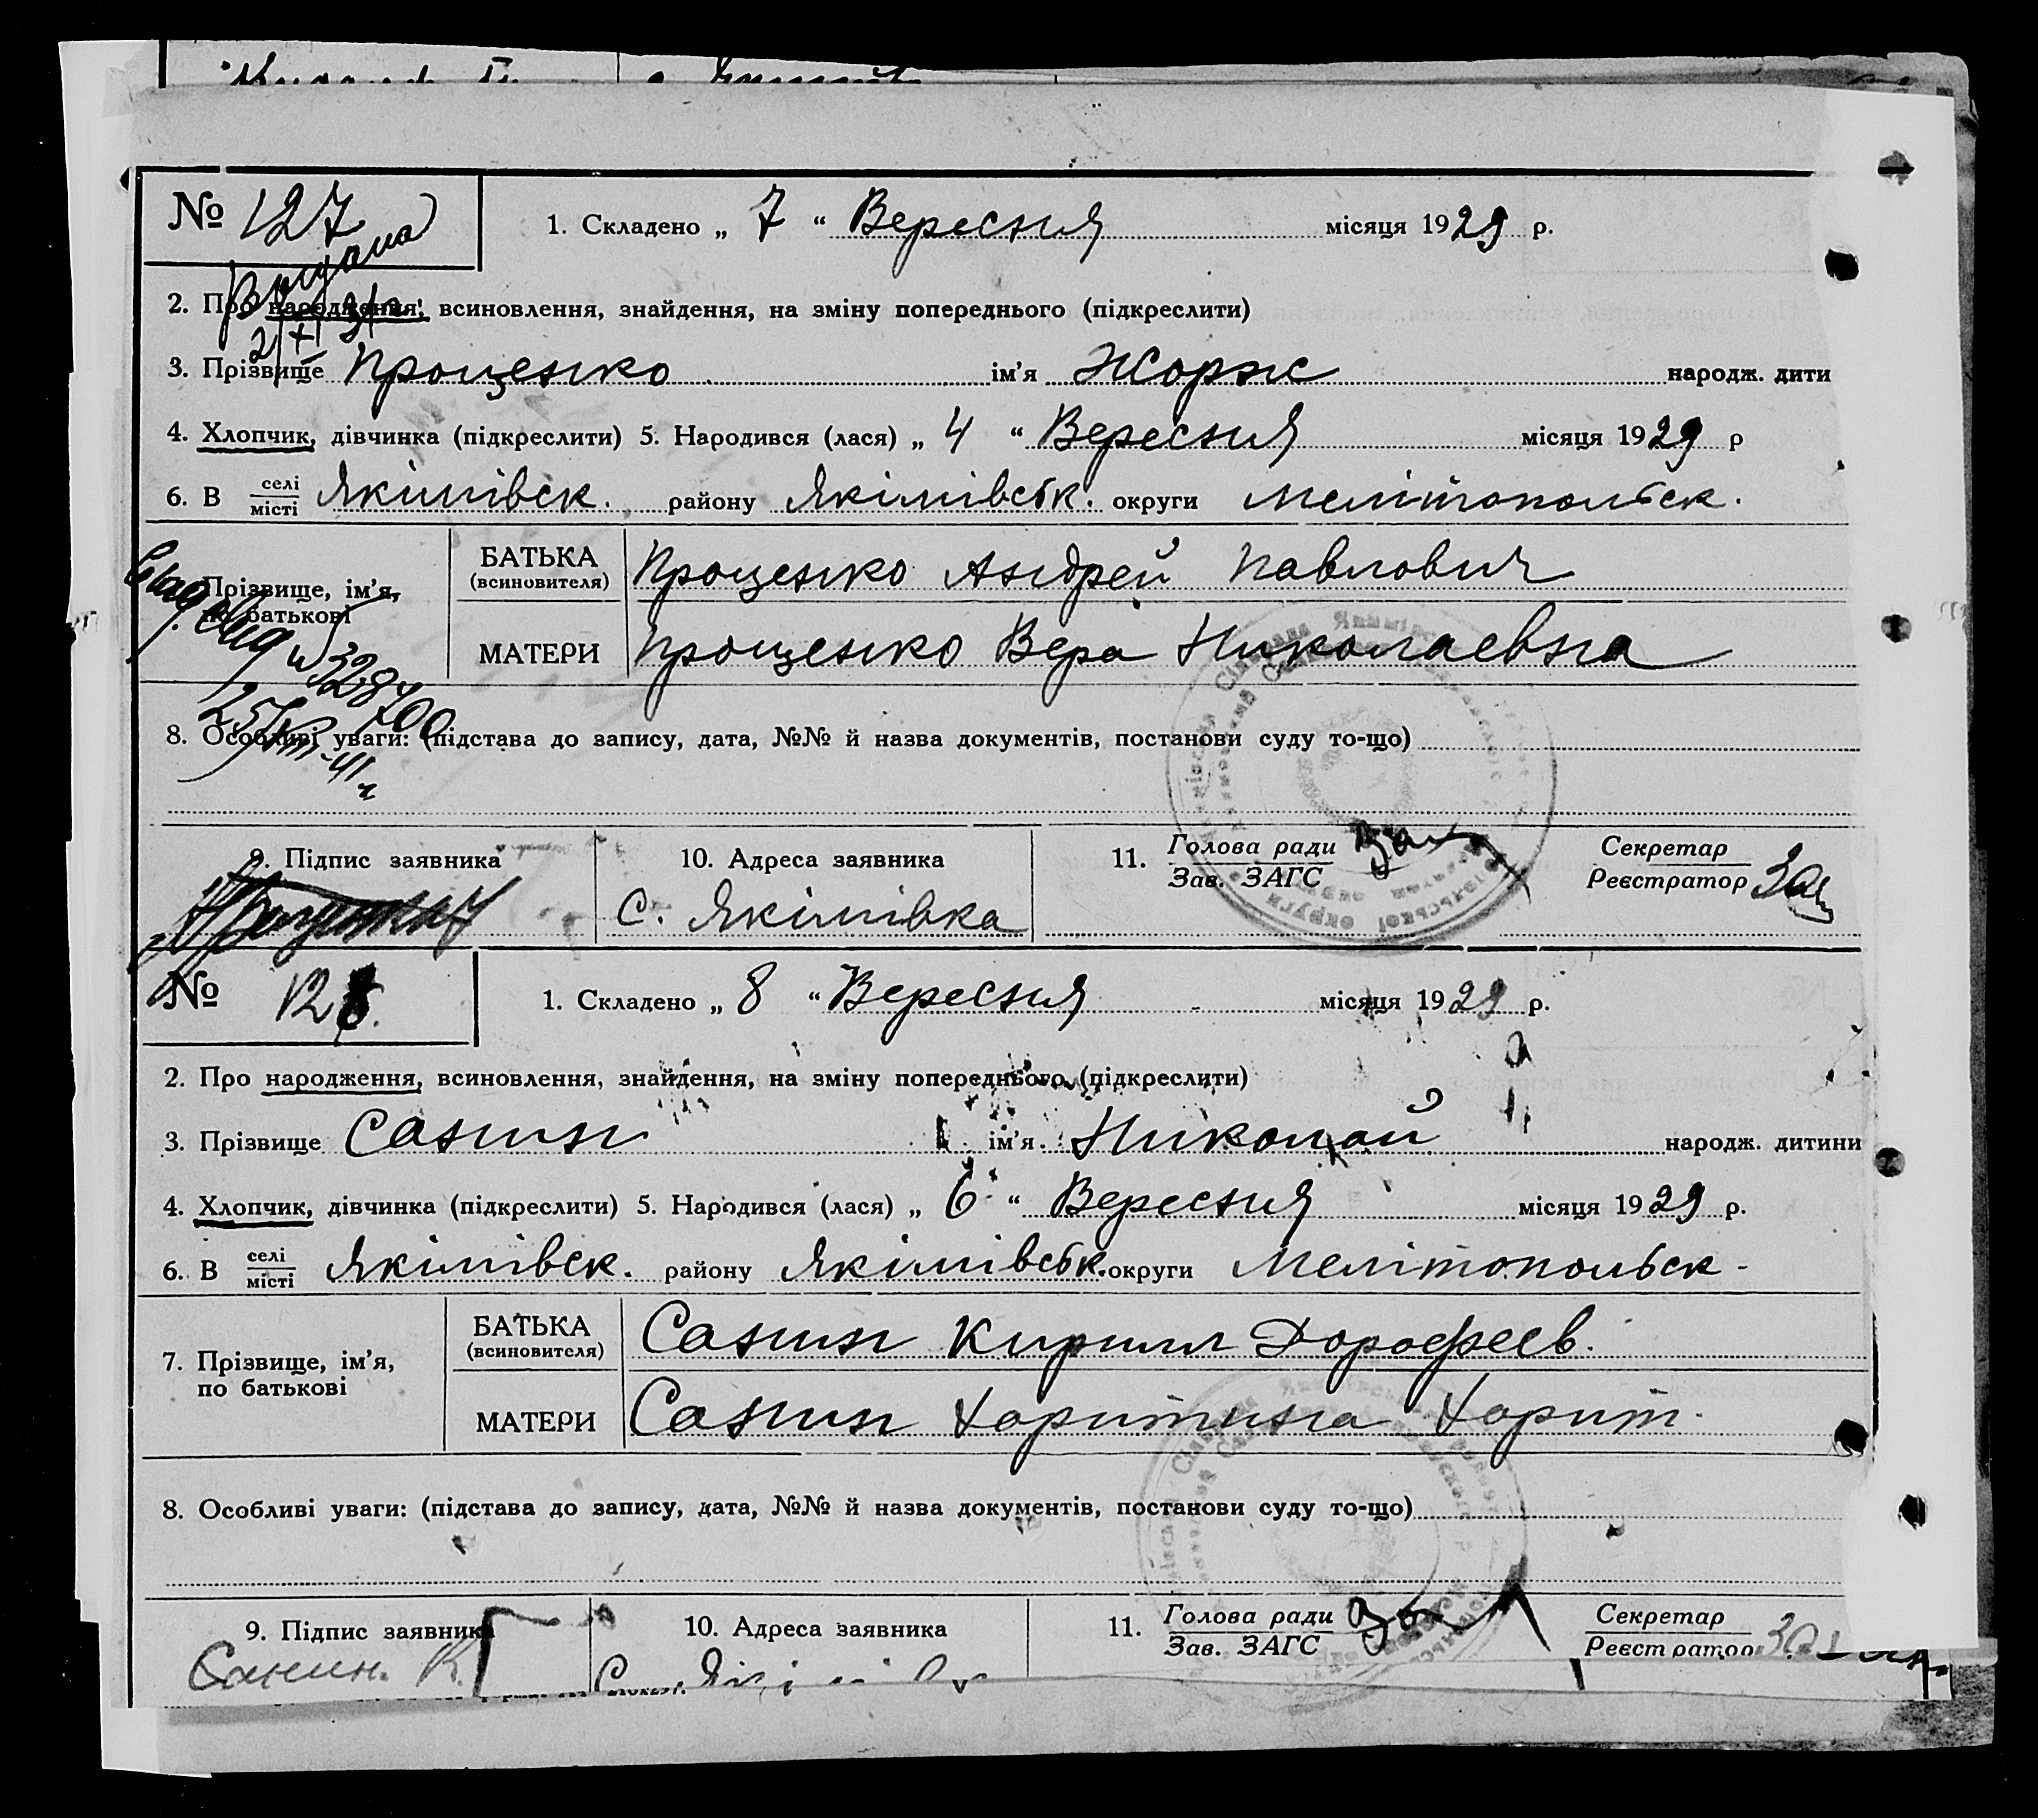 № 127
1. Складено „ 7 “ Вересня місяця 1929 р.
Видана
2. Про народження, всиновлення, знайдення, на зміну попереднього (підкреслити)
3. Прізвище Проценко ім'я Жорж народж. дити
4. Хлопчик, дівчинка (підкреслити) 5. Народився (лася) „ 4 “ Вересня місяця 1929 р
6. В селі місті Якімівск. району Якімівськ. округи Мелітопольск.
Прізвище, ім'я, по батькові
БАТЬКА (всиновителя) Проценко Андрей Павлович
МАТЕРИ Проценко Вера Николаевна
8. Особливі уваги: (підстава до запису, дата, №№ й назва документів, постанови суду то-що)
9. Підпис заявника
10. Адреса заявника
11. Голова ради Зав. ЗАГС
Секретар Реєстратор
С. Якімівка
№ 128.
1. Складено „ 8 “ Вересня місяця 1929 р.
2. Про народження, всиновлення, знайдення, на зміну попереднього (підкреслити)
3. Прізвище Санин ім'я Николай народж. дитини
4. Хлопчик, дівчинка (підкреслити) 5. Народився (лася) „ 6 “ Вересня місяця 1929 р.
6. В селі місті Якімівск. району Якімівськ. округи Мелітопольск-
7. Прізвище, ім'я, по батькові
БАТЬКА (всиновителя) Санин Кирилл Дорофеев.
МАТЕРИ Санин Харитина Харит.
8. Особливі уваги: (підстава до запису, дата, №№ й назва документів, постанови суду то-що)
9. Підпис заявника
10. Адреса заявника
11. Голова ради Зав. ЗАГС
Секретар Реєстратор
Санин. К.